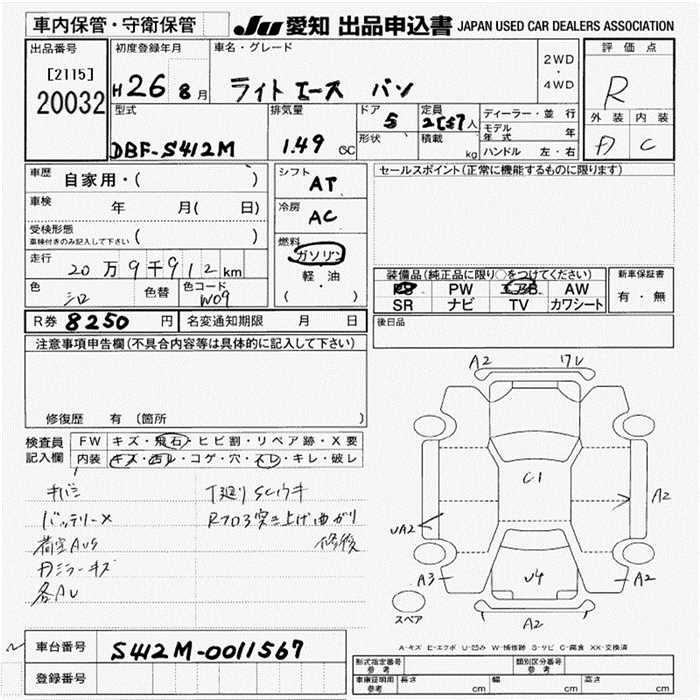 車内保管・守衛保管
JU 愛知 出品申込書 JAPAN USED CAR DEALERS ASSOCIATION
出品番号
[2115]
20032
初度登録年月
H26 8月
車名・グレード
ライト エース バン
2WD
・
4WD
評価点
R
外装 内装
C
型式
DBF-S412M
排気量
1.49 CC
ドア
5
形状
定員
人
積載
kg
ディーラー・並行
モデル年式 年
ハンドル 左・右
車歴
自家用・( )
車検
年 月( 日)
受検形態
車検付きのみ記入して下さい
( )
走行
20万9千912km
色
シロ
色替
色コード
W09
シフト
AT
冷房
AC
燃料
ガソリン
軽・油
( )
セールスポイント(正常に機能するものに限ります)
装備品(純正品に限り○をつけてください)
PS PW エアB AW
SR ナビ TV カワシート
新車保証書
有・無
後日品
R券 8250 円
名変通知期限 月 日
注意事項申告欄(不具合内容等は具体的に記入して下さい)
修復歴 有 (箇所 )
検査員記入欄
FW キズ・飛石・ヒビ割・リペア跡・X要
内装 キズ・西レ・コゲ・穴・スレ・キレ・破レ
サバシ
バッテリーX
荷室AUS
ミラーキズ
各AU
下廻りSCウキ
Rフロア突き上げ曲がり
修後
A2 ワレ
C1
A2
UA2
A3
U4
A2
A2
スペア
A-キズ E-エクボ U-凹み W-補修跡 S-サビ C-腐食 XX-交換済
車台番号
S412M-0011567
登録番号
形式指定番号
参考
類別区分番号
参考
車庫証明用
参考
長さ cm 幅 cm 高さ cm